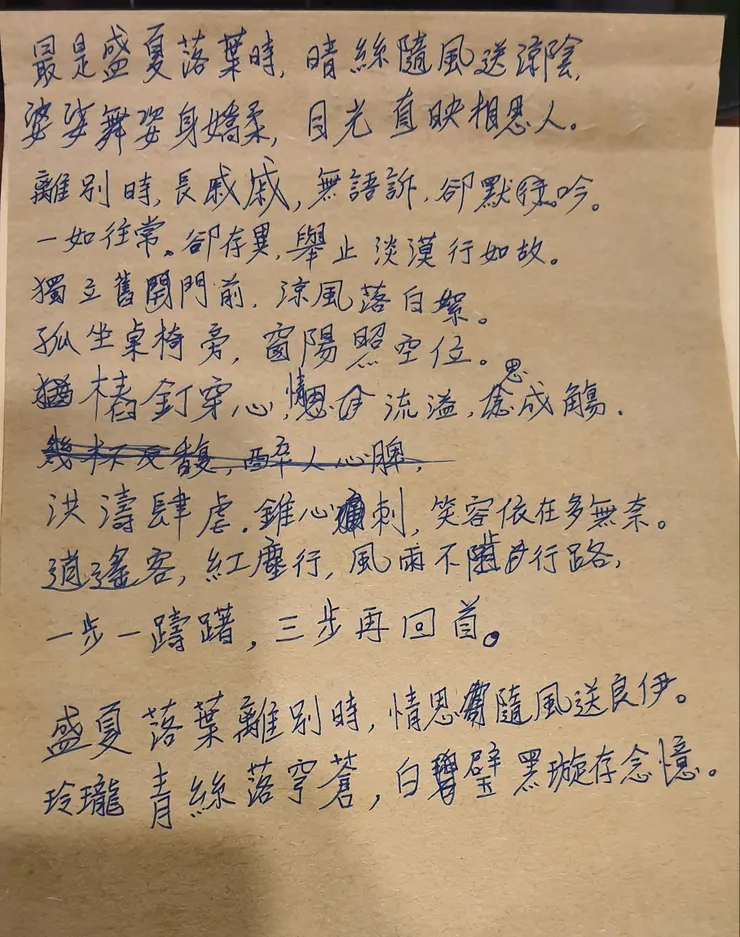 最是盛夏落葉時,晴絲隨風送涼陰,
婆娑舞姿身嬌柔,目光直映相思人。
離別時,長戚戚,無語訴,卻默吟。
一如往常。卻存異,舉止淡漠行如故。
獨立舊門前,涼風落白絮。
孤坐桌椅旁,窗陽照空位。
樁釘穿心,情思流溢,念思成觴.
洪濤肆虐.錐心刺,笑容依在多無奈。
逍遙客,紅塵行,風雨不隨行路,
一步一躊躇,三步再回首。
盛夏落葉離別時,情思隨風送良伊。
玲瓏青絲落穹蒼,白璧黑璇存念憶。